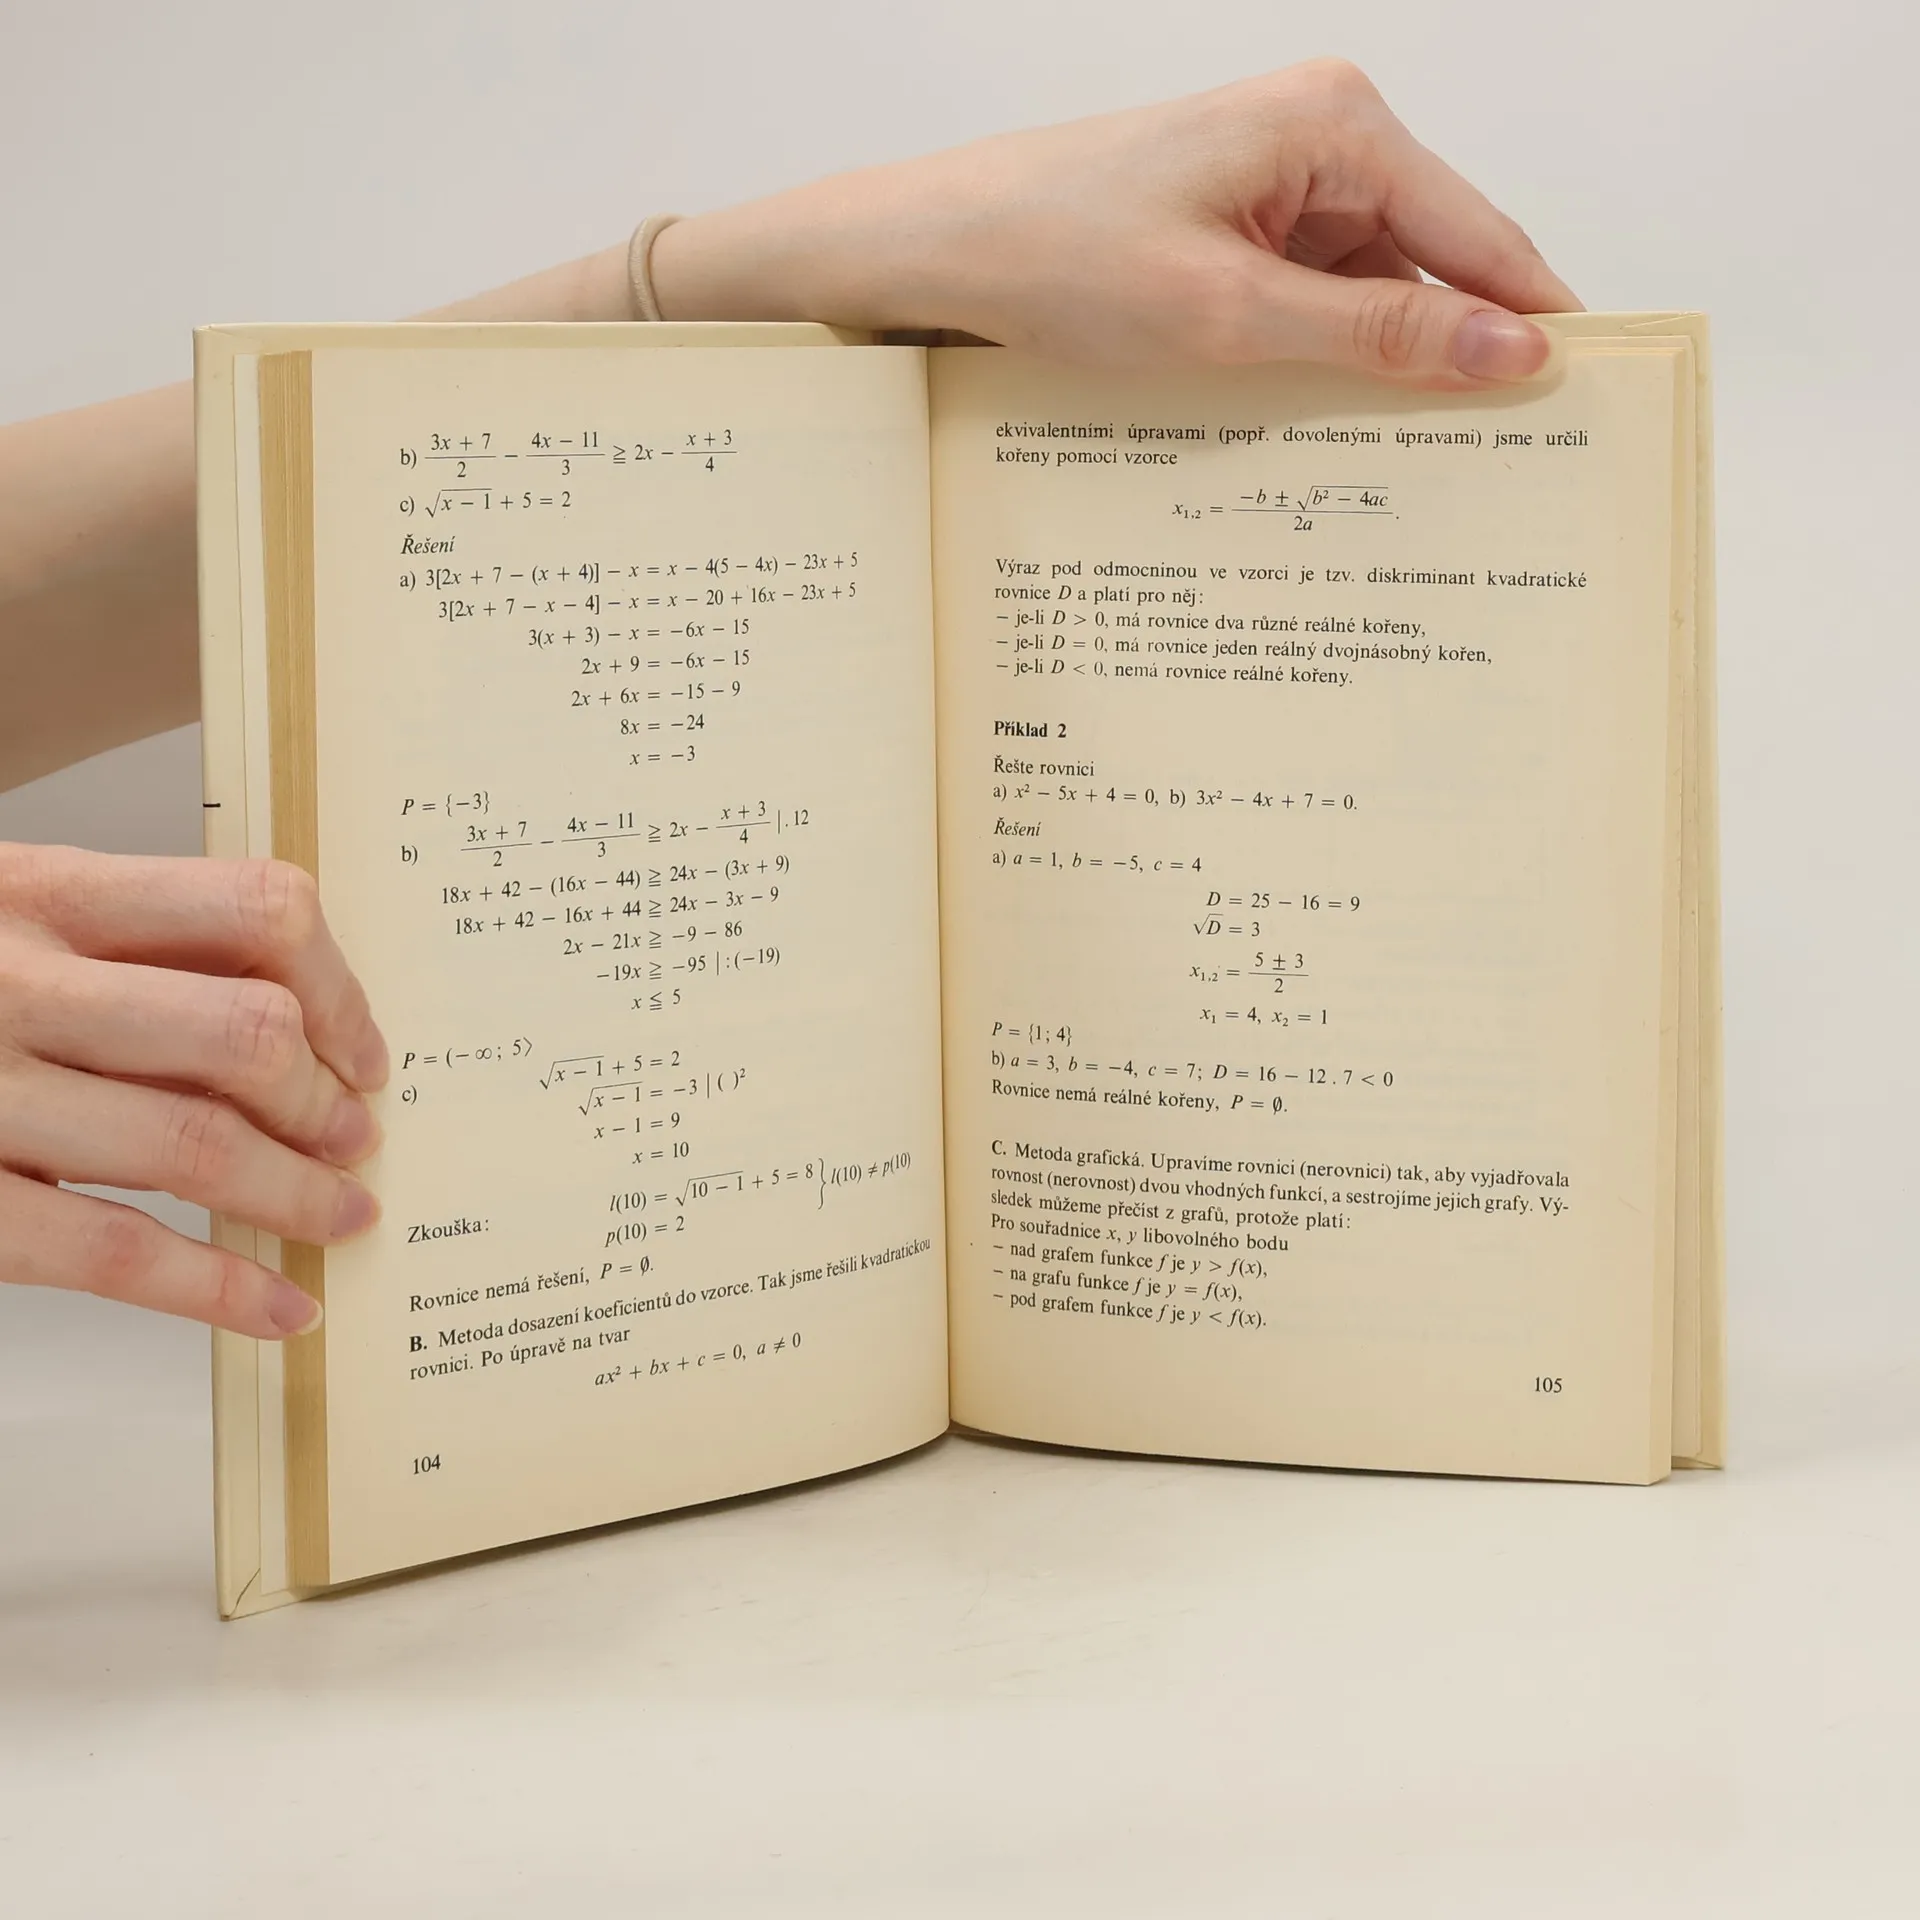 b) (3x + 7)/2 − (4x − 11)/3 ≧ 2x − (x + 3)/4
c) √(x − 1) + 5 = 2
Řešení
a) 3[2x + 7 − (x + 4)] − x = x − 4(5 − 4x) − 23x + 5
3[2x + 7 − x − 4] − x = x − 20 + 16x − 23x + 5
3(x + 3) − x = −6x − 15
2x + 9 = −6x − 15
2x + 6x = −15 − 9
8x = −24
x = −3
P = {−3}
b) (3x + 7)/2 − (4x − 11)/3 ≧ 2x − (x + 3)/4 |. 12
18x + 42 − (16x − 44) ≧ 24x − (3x + 9)
18x + 42 − 16x + 44 ≧ 24x − 3x − 9
2x − 21x ≧ −9 − 86
−19x ≧ −95 |:(−19)
x ≦ 5
P = (−∞; 5⟩
c) √(x − 1) + 5 = 2
√(x − 1) = −3 | ( )²
x − 1 = 9
x = 10
Zkouška: l(10) = √(10 − 1) + 5 = 8 } l(10) ≠ p(10)
p(10) = 2
Rovnice nemá řešení, P = ∅.
B. Metoda dosazení koeficientů do vzorce. Tak jsme řešili kvadratickou
rovnici. Po úpravě na tvar
ax² + bx + c = 0, a ≠ 0
104
ekvivalentními úpravami (popř. dovolenými úpravami) jsme určili
kořeny pomocí vzorce
x₁,₂ = (−b ± √(b² − 4ac))/2a.
Výraz pod odmocninou ve vzorci je tzv. diskriminant kvadratické
rovnice D a platí pro něj:
– je-li D > 0, má rovnice dva různé reálné kořeny,
– je-li D = 0, má rovnice jeden reálný dvojnásobný kořen,
– je-li D < 0, nemá rovnice reálné kořeny.
Příklad 2
Řešte rovnici
a) x² − 5x + 4 = 0, b) 3x² − 4x + 7 = 0.
Řešení
a) a = 1, b = −5, c = 4
D = 25 − 16 = 9
√D = 3
x₁,₂ = (5 ± 3)/2
x₁ = 4, x₂ = 1
P = {1; 4}
b) a = 3, b = −4, c = 7; D = 16 − 12 . 7 < 0
Rovnice nemá reálné kořeny, P = ∅.
C. Metoda grafická. Upravíme rovnici (nerovnici) tak, aby vyjadřovala
rovnost (nerovnost) dvou vhodných funkcí, a sestrojíme jejich grafy. Vý-
sledek můžeme přečíst z grafů, protože platí:
Pro souřadnice x, y libovolného bodu
– nad grafem funkce f je y > f(x),
– na grafu funkce f je y = f(x),
– pod grafem funkce f je y < f(x).
105